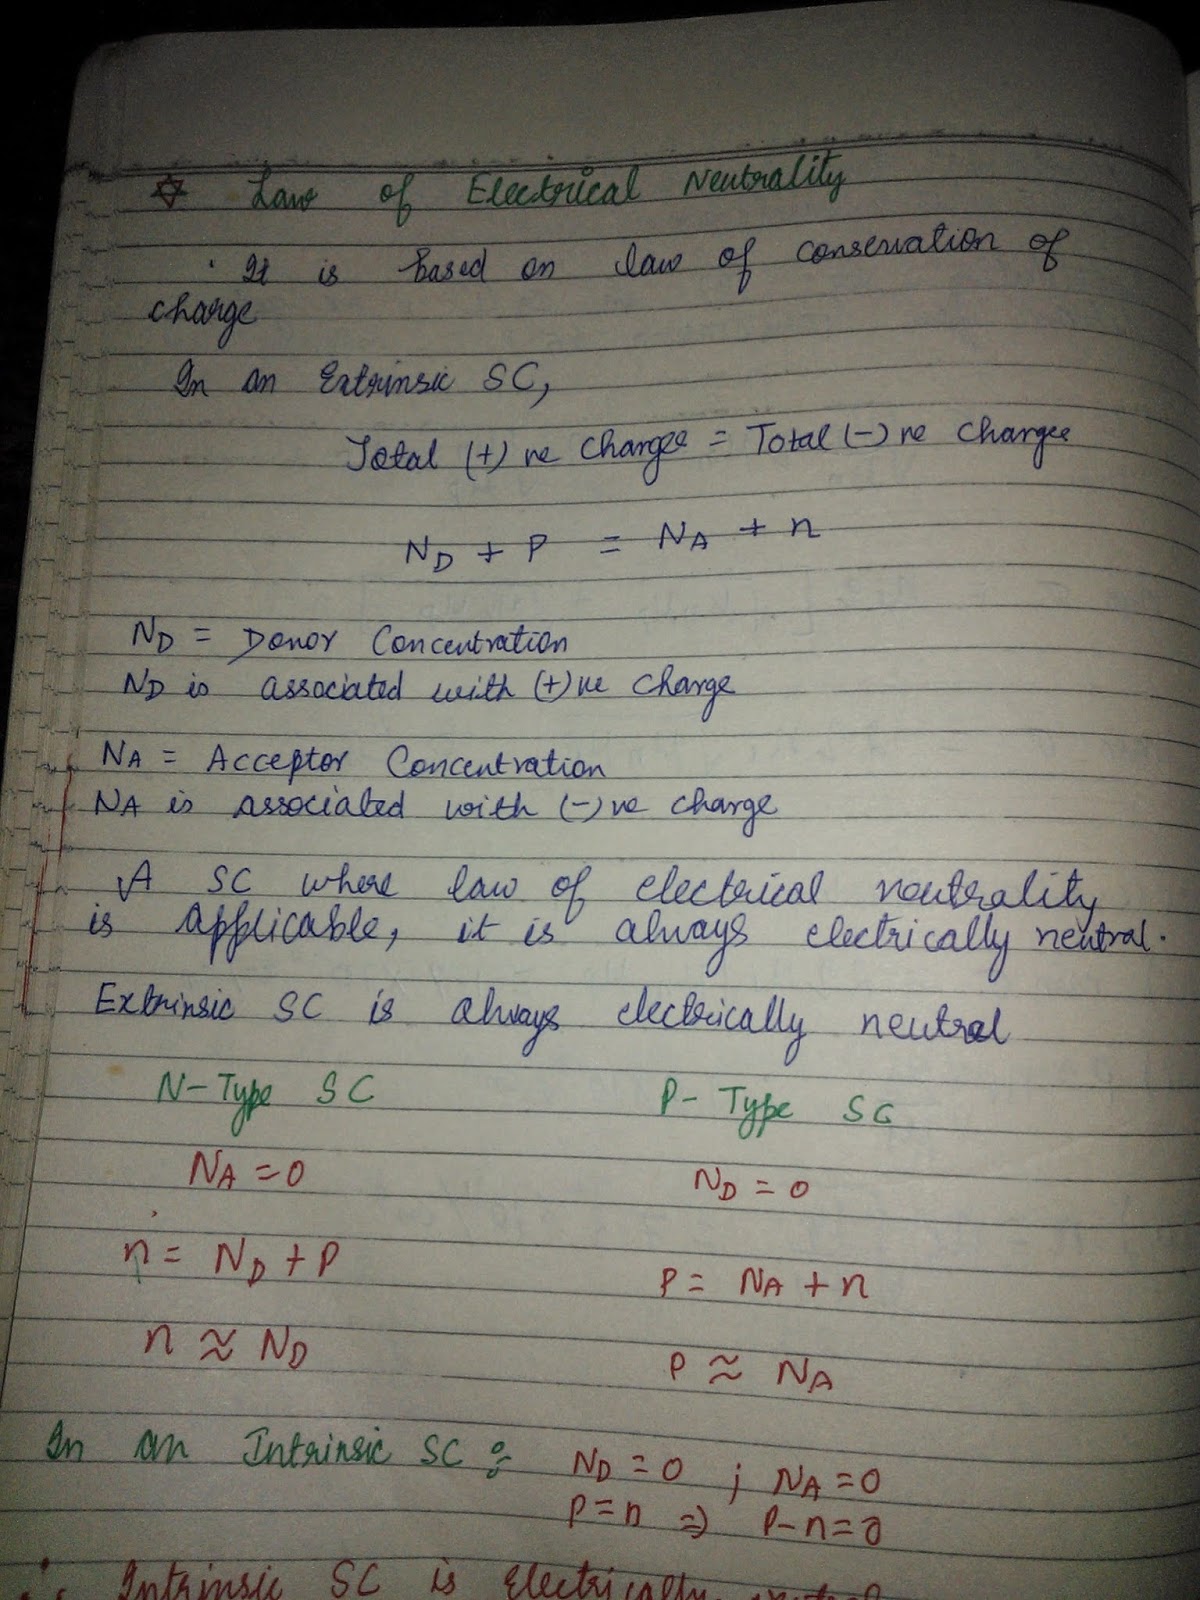 ✡ Law of Electrical Neutrality
• It is based on law of conservation of
charge
In an Extrinsic SC,
Total (+)ve Charge = Total (-)ve Charge
ND + P = NA + n
ND = Donor Concentration
ND is associated with (+)ve charge
NA = Acceptor Concentration
NA is associated with (-)ve charge
A SC where law of electrical neutrality
is applicable, it is always electrically neutral.
Extrinsic SC is always electrically neutral
N-Type SC P-Type SC
NA = 0 ND = 0
n = ND + P P = NA + n
n ≈ ND P ≈ NA
In an Intrinsic SC : ND = 0 ; NA = 0
P = n ⇒ P - n = 0
∴ Intrinsic SC is Electrically neutral